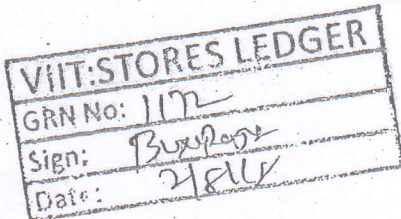 VIIT:STORES LEDGER
GRN No: 1172
Sign:
Date: 2/8/18